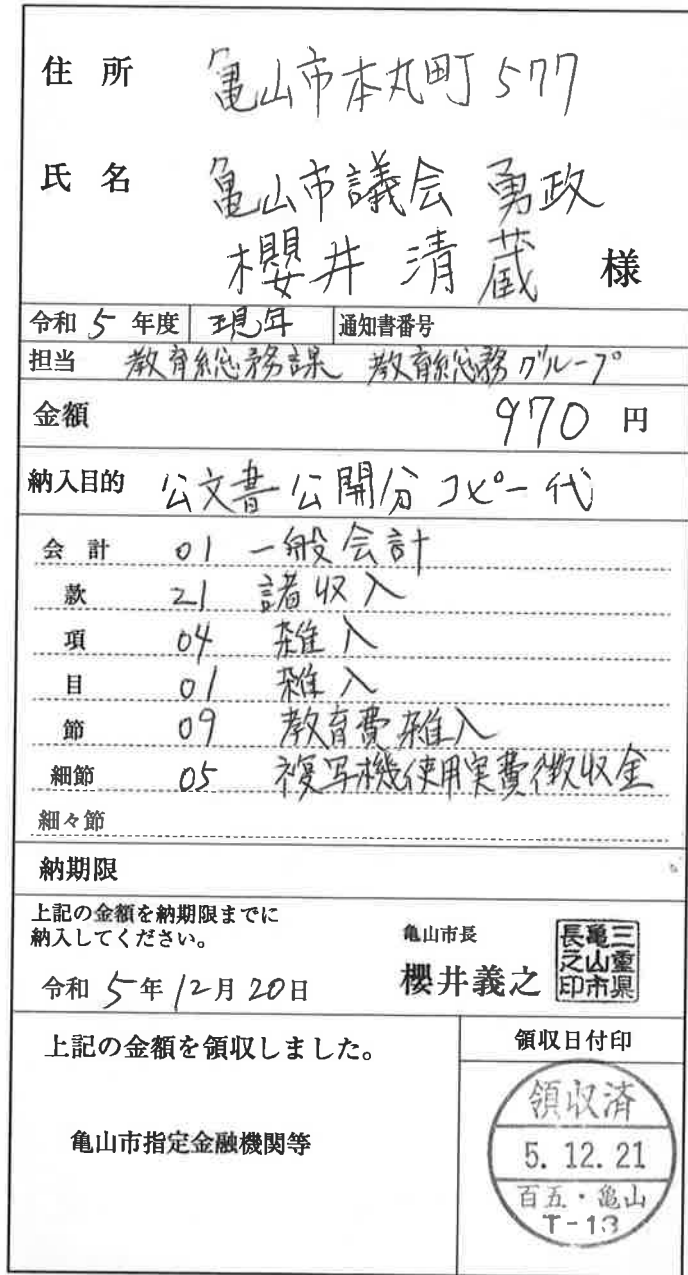 住所 亀山市本丸町577
氏名 亀山市議会 勇政
櫻井 清蔵 様
令和 5 年度 現年 通知書番号
担当 教育総務課 教育総務グループ
金額 970 円
納入目的 公文書公開分コピー代
会計 01 一般会計
款 21 諸収入
項 04 雑入
目 01 雑入
節 09 教育費雑入
細節 05 複写機使用実費徴収金
細々節
納期限
上記の金額を納期限までに
納入してください。
令和 5年 12月 20日
亀山市長
櫻井義之
三重県
亀山市
長之印
上記の金額を領収しました。
亀山市指定金融機関等
領収日付印
領収済
5. 12. 21
百五・亀山
T-13